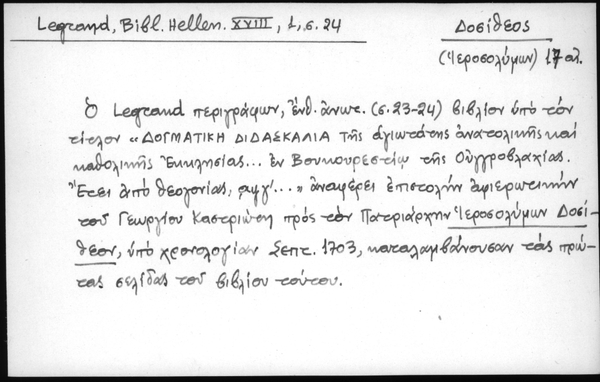 Legrand, Bibl. Hellen. XVIII, 1, σ. 24
Δοσίθεος
(Ἱεροσολύμων) 17 αἰ.
Ὁ Legrand περιγράφων, ἔνθ. ἀνωτ. (σ. 23-24) βιβλίον ὑπὸ τὸν
τίτλον «ΔΟΓΜΑΤΙΚΗ ΔΙΔΑΣΚΑΛΙΑ τῆς ἁγιωτάτης ἀνατολικῆς καὶ
καθολικῆς Ἐκκλησίας... ἐν Βουκουρεστίῳ τῆς Οὑγγροβλαχίας.
Ἔτει ἀπὸ θεογονίας, αψγ΄...» ἀναφέρει ἐπιστολὴν ἀφιερωτικὴν
τοῦ Γεωργίου Καστριώτη πρὸς τὸν Πατριάρχην Ἱεροσολύμων Δοσί-
θεον, ὑπὸ χρονολογίαν Σεπτ. 1703, καταλαμβάνουσαν τὰς πρώ-
τας σελίδας τοῦ βιβλίου τούτου.